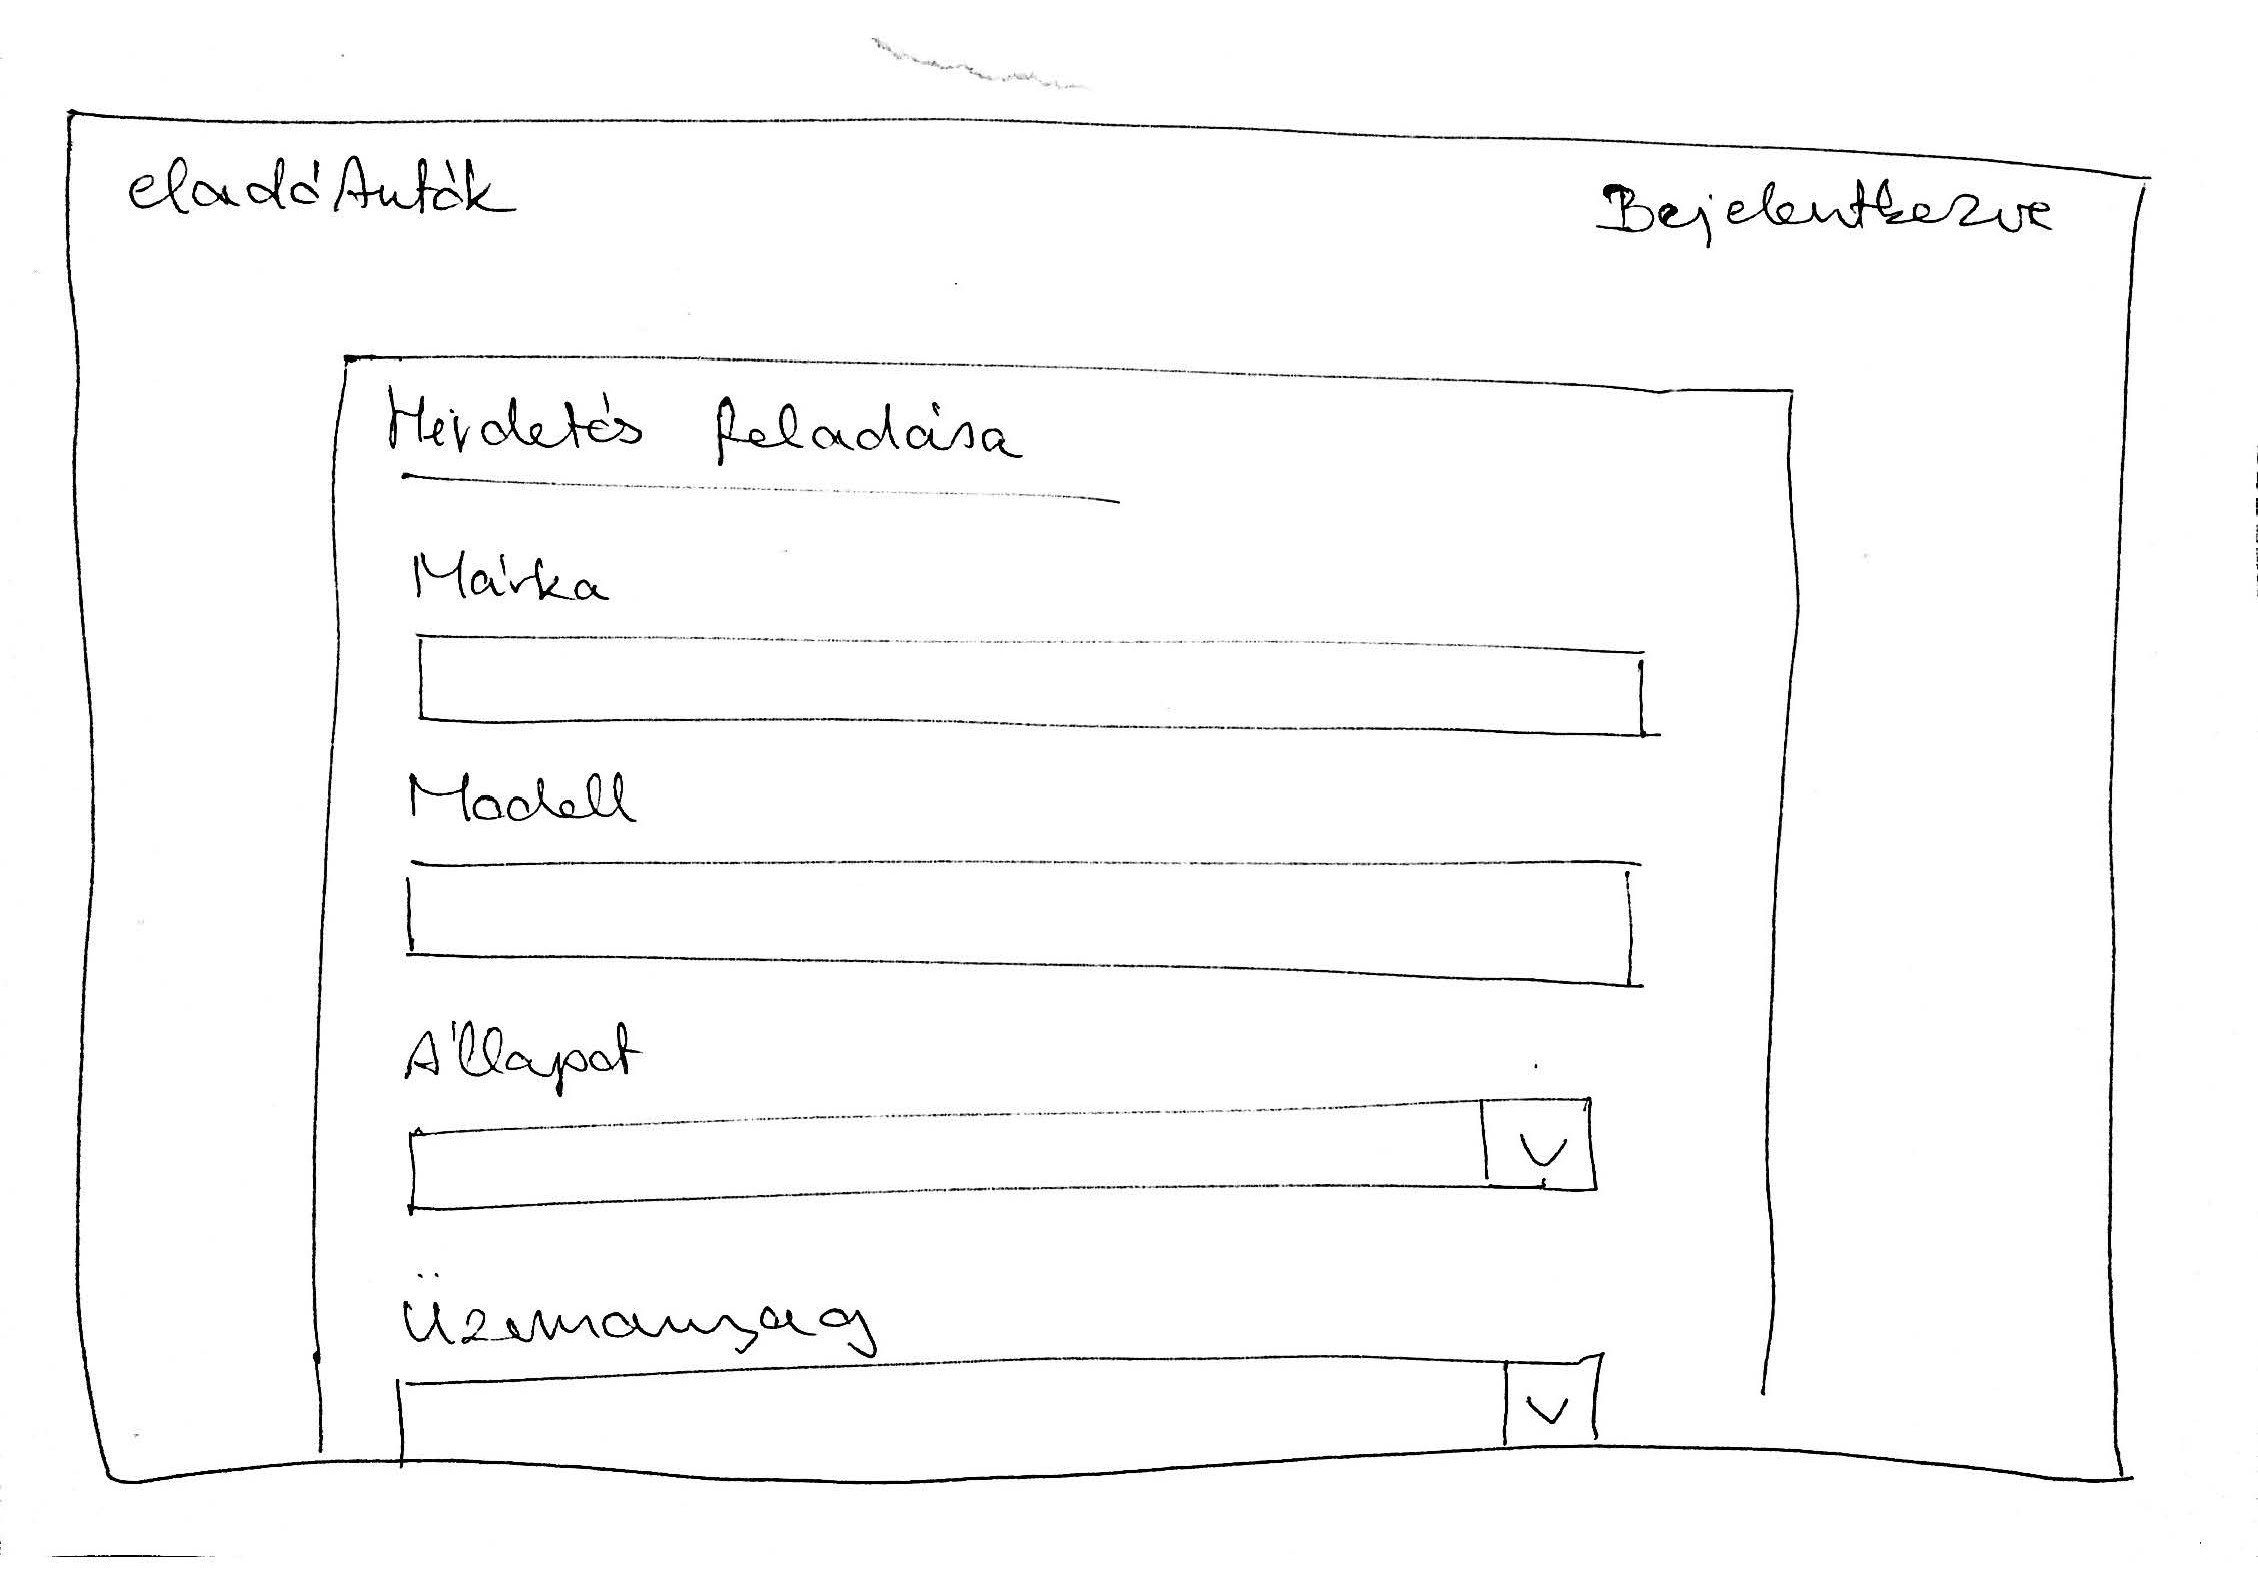 eladóAutók
Bejelentkezve
Hirdetés feladása
Márka
Modell
Állapot
Üzemanyag